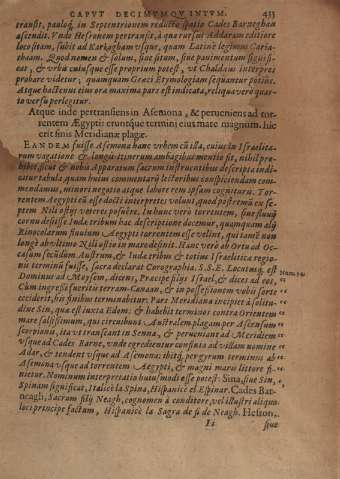 CAPVT DECIMVMQVINTVM. 433
transit, paulo, in Septentrionem reducto spatio Cades Barneghan
ascendit. Vnde Hesronem pertransit, à qua rursus Addaram editiore
loco sitam, subit ad Karkagham vsque, quam Latinè legimus Caria-
thaam. Quod nomen & solum, siue situm, siue pauimentum signifi-
cat; & vrbis cuiusque esse proprium potest, vt Chaldaus interpres
probare videtur; quamquam Graci Etymologiam sequuntur potius.
Atque hactenus eius ora maxima pars est indicata, reliqua verò quar-
to versu perlegitur.
Atque inde pertransiens in Asemona, & perueniens ad tor-
rentem Ægypti: eruntque termini eius mare magnum. hic
erit finis Meridianæ plagæ.
EANDEM fuisse Asemona hanc vrbem cū illa, cuius in Israelita-
rum vagatione & longa itinerum ambagibus mentio fit, nihil pro-
hibet: sicut & nobis Apparatum sacrum instruentibus descriptio indi-
catur tabula quam huius commentarij lectoribus conspiciendam com-
mendamus, minori negotio atque labore rem ipsam cognituris. Tor-
rentem Ægypti eū esse docti interpretes volunt quod postremū ex se-
ptem Nili ostijs veteres posuêre. In hunc verò torrentem, siue fluuiū
cornu desiisse Inda tribum hac descriptione docemur, quamquam alij
Rinocoluram fluuium Aegypti torrentem esse velint, qui tamē non
longè ab vltimo Nili ostio in mare desinit. Hanc verò ab Ortu ad Oc-
casum secūdum Austrum, & Iuda tribus & totius Israelitica regio-
nis termini fuisse, sacra declarat Corographia. S.S.E. Locutusq. est
Dominus ad Moysem, dicens, Præcipe filijs Israel, & dices ad eos, Num. 34
Cùm ingressi fueritis terram Canaan, & in possessionem vobis sorte
ceciderit, his finibus terminabitur. Pars Meridiana incipiet à solitu-
dine Sin, qua est iuxta Edom: & habebit terminos contra Orientem
mare salsissimum, qui circuibunt Australem plagam per Ascensum
scorpionis, ita vt transeant in Senna, & perueniant ad Meridiem
vsque ad Cades Barne, vnde egredientur confinia ad villam nomine
Adar, & tendent vsque ad Asemona: ibitq. per gyrum terminus ab
Asemona vsque ad torrentem Aegypti, & magni maris littore fi-
nietur. Nominum interpretatio huiusmodi esse potest: Sina, siue Sin,
Spinam significat, Italicè la Spina, Hispanicè el Espinar. Cades Bar-
neagh, Sacrum filij Neagh, cognomen à conditore, vel illustri aliquo
loci principe factam, Hispanicè la Sagra de fi de Neagh. Hesron,
Ii siue